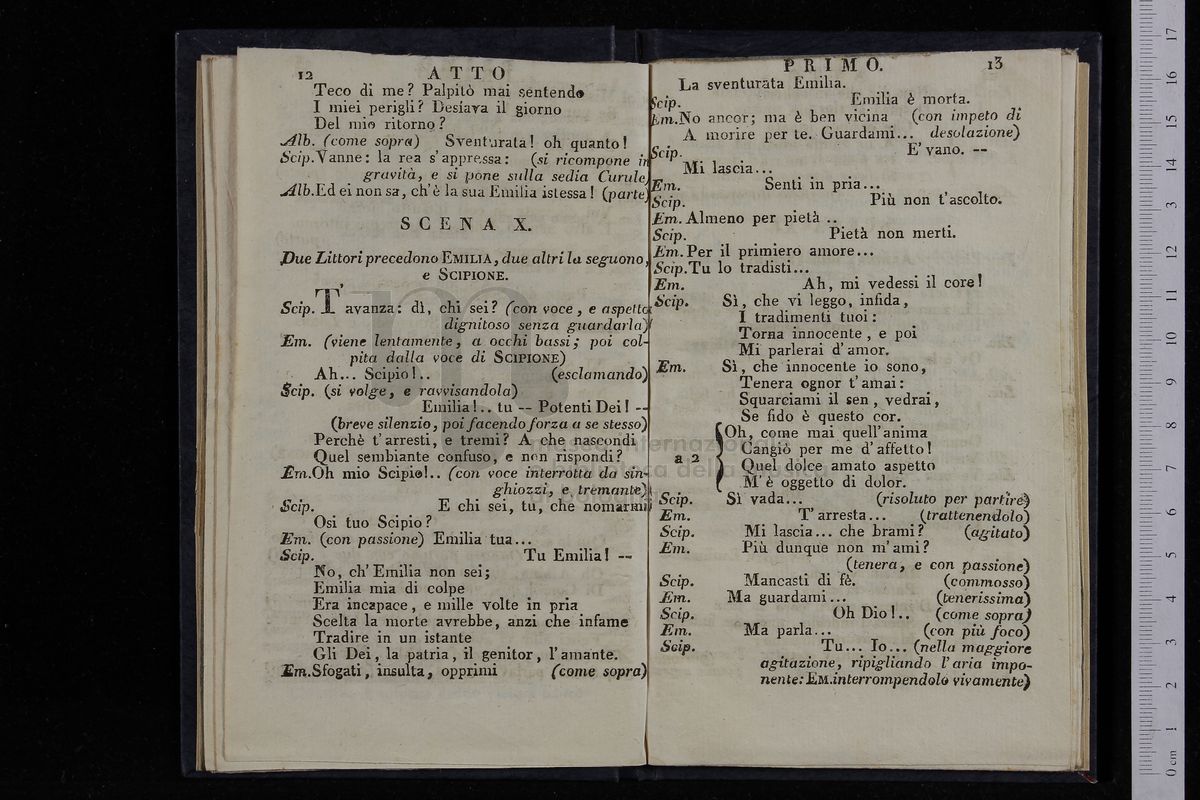 12 ATTO
Teco di me? Palpitò mai sentendo
I miei perigli? Desiava il giorno
Del mio ritorno?
Alb. (come sopra) Sventurata! oh quanto!
Scip. Vanne: la rea s'appressa: (si ricompone in
gravità, e si pone sulla sedia Curule)
Alb. Ed ei non sa, ch'è la sua Emilia istessa! (parte)
SCENA X.
Due Littori precedono EMILIA, due altri la seguono,
e SCIPIONE.
Scip. T'avanza: dì, chi sei? (con voce, e aspetto
dignitoso senza guardarla)
Em. (viene lentamente, a occhi bassi; poi col-
pita dalla voce di SCIPIONE)
Ah... Scipio!.. (esclamando)
Scip. (si volge, e ravvisandola)
Emilia!.. tu -- Potenti Dei! --
(breve silenzio, poi facendo forza a se stesso)
Perchè t'arresti, e tremi? A che nascondi
Quel sembiante confuso, e non rispondi?
Em. Oh mio Scipio!.. (con voce interrotta da sin-
ghiozzi, e tremante)
Scip. E chi sei, tu, che nomarmi
Osi tuo Scipio?
Em. (con passione) Emilia tua...
Scip. Tu Emilia! --
No, ch'Emilia non sei;
Emilia mia di colpe
Era incapace, e mille volte in pria
Scelta la morte avrebbe, anzi che infame
Tradire in un istante
Gli Dei, la patria, il genitor, l'amante.
Em. Sfogati, insulta, opprimi (come sopra)
PRIMO. 13
La sventurata Emilia.
Scip. Emilia è morta.
Em. No ancor; ma è ben vicina (con impeto di
A morire per te. Guardami... desolazione)
Scip. E' vano. --
Mi lascia...
Em. Senti in pria...
Scip. Più non t'ascolto.
Em. Almeno per pietà ..
Scip. Pietà non merti.
Em. Per il primiero amore...
Scip. Tu lo tradisti...
Em. Ah, mi vedessi il core!
Scip. Sì, che vi leggo, infida,
I tradimenti tuoi:
Torna innocente, e poi
Mi parlerai d'amor.
Em. Sì, che innocente io sono,
Tenera ognor t'amai:
Squarciami il sen, vedrai,
Se fido è questo cor.
Oh, come mai quell'anima
Cangiò per me d'affetto!
a 2
Quel dolce amato aspetto
M'è oggetto di dolor.
Scip. Sì vada... (risoluto per partire)
Em. T'arresta... (trattenendolo)
Scip. Mi lascia... che brami? (agitato)
Em. Più dunque non m'ami?
(tenera, e con passione)
Scip. Mancasti di fè. (commosso)
Em. Ma guardami... (tenerissima)
Scip. Oh Dio!.. (come sopra)
Em. Ma parla... (con più foco)
Scip. Tu... Io... (nella maggiore
agitazione, ripigliando l'aria impo-
nente: EM. interrompendolo vivamente)
0 cm 1 2 3 4 5 6 7 8 9 10 11 12 13 14 15 16 17